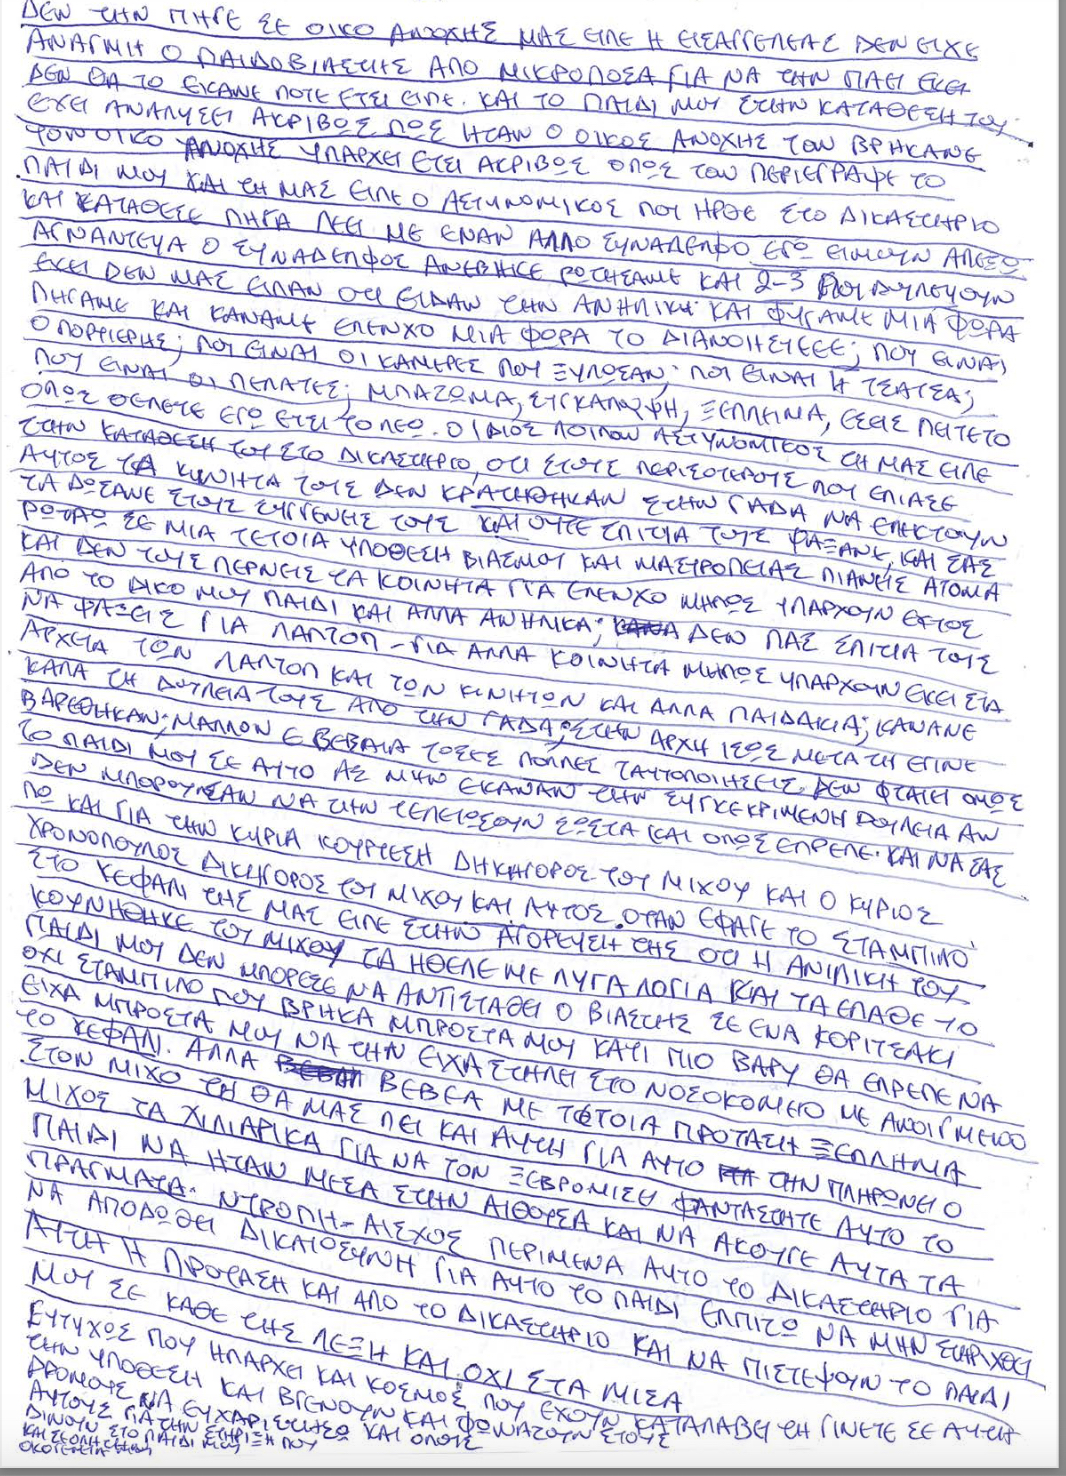 ΔΕΝ ΤΗΝ ΠΗΓΕ ΣΕ ΟΙΚΟ ΑΝΟΧΗΣ ΜΑΣ ΕΙΠΕ Η ΕΙΣΑΓΓΕΛΕΑΣ ΔΕΝ ΕΙΧΕ
ΑΝΑΓΚΗ Ο ΠΑΙΔΟΒΙΑΣΤΗΣ ΑΠΟ ΜΙΚΡΟΠΟΣΑ ΓΙΑ ΝΑ ΤΗΝ ΠΑΕΙ ΕΚΕΙ
ΔΕΝ ΘΑ ΤΟ ΕΚΑΝΕ ΠΟΤΕ ΕΤΣΙ ΕΙΠΕ. ΚΑΙ ΤΟ ΠΑΙΔΙ ΜΟΥ ΣΤΗΝ ΚΑΤΑΘΕΣΗ ΤΟΥ
ΕΧΕΙ ΑΝΑΛΥΣΕΙ ΑΚΡΙΒΩΣ ΠΩΣ ΗΤΑΝ Ο ΟΙΚΟΣ ΑΝΟΧΗΣ ΤΟΝ ΒΡΗΚΑΝΕ
ΤΟΝ ΟΙΚΟ ΑΝΟΧΗΣ ΥΠΑΡΧΕΙ ΕΤΣΙ ΑΚΡΙΒΩΣ ΟΠΩΣ ΤΟΝ ΠΕΡΙΕΓΡΑΨΕ ΤΟ
ΠΑΙΔΙ ΜΟΥ ΚΑΙ ΤΗ ΜΑΣ ΕΙΠΕ Ο ΑΣΤΥΝΟΜΙΚΟΣ ΠΟΥ ΗΡΘΕ ΣΤΟ ΔΙΚΑΣΤΗΡΙΟ
ΚΑΙ ΚΑΤΑΘΕΣΕ ΠΗΓΑ ΛΕΕΙ ΜΕ ΕΝΑΝ ΑΛΛΟ ΣΥΝΑΔΕΛΦΟ ΕΓΩ ΕΙΜΟΥΝ ΑΠΕΞΩ
ΑΓΝΑΝΤΕΥΑ Ο ΣΥΝΑΔΕΛΦΟΣ ΑΝΕΒΗΚΕ ΡΩΤΗΣΑΜΕ ΚΑΙ 2-3 ΠΟΥ ΔΥΛΕΥΟΥΝ
ΕΚΕΙ ΔΕΝ ΜΑΣ ΕΙΠΑΝ ΟΤΙ ΕΙΔΑΝ ΤΗΝ ΑΝΗΛΙΚΗ ΚΑΙ ΦΥΓΑΜΕ ΜΙΑ ΦΩΡΑ
ΠΗΓΑΜΕ ΚΑΙ ΚΑΝΑΜΕ ΕΛΕΝΧΟ ΜΙΑ ΦΟΡΑ ΤΟ ΔΙΑΝΟΗΣΤΕΕΕ; ΠΟΥ ΕΙΝΑΙ
Ο ΠΟΡΤΙΕΡΗΣ; ΠΟΥ ΕΙΝΑΙ ΟΙ ΚΑΜΕΡΕΣ ΠΟΥ ΞΥΛΩΣΑΝ; ΠΟΥ ΕΙΝΑΙ Η ΤΣΑΤΣΑ;
ΠΟΥ ΕΙΝΑΙ ΟΙ ΠΕΛΑΤΕΣ; ΜΠΑΖΩΜΑ, ΣΥΓΚΑΛΥΨΗ, ΞΕΠΛΕΙΜΑ, ΕΣΕΙΣ ΠΕΙΤΕΤΟ
ΟΠΩΣ ΘΕΛΕΤΕ ΕΓΩ ΕΤΣΙ ΤΟ ΛΕΩ. Ο ΙΔΙΟΣ ΛΟΙΠΟΝ ΑΣΤΥΝΟΜΙΚΟΣ ΤΗ ΜΑΣ ΕΙΠΕ
ΣΤΗΝ ΚΑΤΑΘΕΣΗ ΤΟΥ ΣΤΟ ΔΙΚΑΣΤΗΡΙΟ, ΟΤΙ ΣΤΟΥΣ ΠΕΡΙΣΟΤΕΡΟΥΣ ΠΟΥ ΕΠΙΑΣΕ
ΑΥΤΟΣ ΤΑ ΚΙΝΗΤΑ ΤΟΥΣ ΔΕΝ ΚΡΑΤΗΘΗΚΑΝ ΣΤΗΝ ΓΑΔΑ ΝΑ ΕΛΗΚΤΟΥΝ
ΤΑ ΔΩΣΑΝΕ ΣΤΟΥΣ ΣΥΓΓΕΝΗΣ ΤΟΥΣ ΚΑΙ ΟΥΤΕ ΣΠΙΤΙΑ ΤΟΥΣ ΨΑΞΑΝΕ, ΚΑΙ ΣΑΣ
ΡΩΤΑΩ ΣΕ ΜΙΑ ΤΕΤΟΙΑ ΥΠΟΘΕΣΗ ΒΙΑΣΜΟΥ ΚΑΙ ΜΑΣΤΡΟΠΕΙΑΣ ΠΙΑΝΕΙΣ ΑΤΟΜΑ
ΚΑΙ ΔΕΝ ΤΟΥΣ ΠΕΡΝΕΙΣ ΤΑ ΚΟΙΝΗΤΑ ΓΙΑ ΕΛΕΝΧΟ ΜΗΠΩΣ ΥΠΑΡΧΟΥΝ ΕΚΤΟΣ
ΑΠΟ ΤΟ ΔΙΚΟ ΜΟΥ ΠΑΙΔΙ ΚΑΙ ΑΛΛΑ ΑΝΗΛΙΚΑ; ΔΕΝ ΠΑΣ ΣΠΙΤΙΑ ΤΟΥΣ
ΝΑ ΨΑΞΕΙΣ ΓΙΑ ΛΑΠΤΟΠ - ΓΙΑ ΑΛΛΑ ΚΟΙΝΗΤΑ ΜΗΠΩΣ ΥΠΑΡΧΟΥΝ ΕΚΕΙ ΣΤΑ
ΑΡΧΕΙΑ ΤΩΝ ΛΑΠΤΟΠ ΚΑΙ ΤΩΝ ΚΙΝΗΤΩΝ ΚΑΙ ΑΛΛΑ ΠΑΙΔΑΚΙΑ; ΚΑΝΑΝΕ
ΚΑΛΑ ΤΗ ΔΟΥΛΕΙΑ ΤΟΥΣ ΑΠΟ ΤΗΝ ΓΑΔΑ; ΣΤΗΝ ΑΡΧΗ ΙΣΩΣ ΜΕΤΑ ΤΗ ΕΓΙΝΕ
ΒΑΡΕΘΗΚΑΝ; ΜΑΛΛΟΝ Ε ΒΕΒΑΙΑ ΤΟΣΕΣ ΠΟΛΛΕΣ ΤΑΥΤΟΠΟΙΗΣΕΙΣ. ΔΕΝ ΦΤΑΙΕΙ ΟΜΩΣ
ΤΟ ΠΑΙΔΙ ΜΟΥ ΣΕ ΑΥΤΟ ΑΣ ΜΗΝ ΕΚΑΝΑΝ ΤΗΝ ΣΥΓΚΕΚΡΙΜΕΝΗ ΔΟΥΛΕΙΑ ΑΝ
ΔΕΝ ΜΠΟΡΟΥΣΑΝ ΝΑ ΤΗΝ ΤΕΛΕΙΩΣΟΥΝ ΣΩΣΤΑ ΚΑΙ ΟΠΩΣ ΕΠΡΕΠΕ. ΚΑΙ ΝΑ ΣΑΣ
ΠΩ ΚΑΙ ΓΙΑ ΤΗΝ ΚΥΡΙΑ ΚΟΥΡΤΕΣΗ ΔΗΚΗΓΟΡΟΣ ΤΟΥ ΜΙΧΟΥ ΚΑΙ Ο ΚΥΡΙΟΣ
ΧΡΟΝΟΠΟΥΛΟΣ ΔΙΚΗΓΟΡΟΣ ΤΟΥ ΜΙΧΟΥ ΚΑΙ ΑΥΤΟΣ. ΟΤΑΝ ΕΦΑΓΕ ΤΟ ΣΤΑΜΠΙΛΟ
ΣΤΟ ΚΕΦΑΛΙ ΤΗΣ ΜΑΣ ΕΙΠΕ ΣΤΗΝ ΑΓΟΡΕΥΣΗ ΤΗΣ ΟΤΙ Η ΑΝΙΛΙΚΗ ΤΟΥ
ΚΟΥΝΗΘΗΚΕ ΤΟΥ ΜΙΧΟΥ ΤΑ ΗΘΕΛΕ ΜΕ ΛΥΓΑ ΛΟΓΙΑ ΚΑΙ ΤΑ ΕΠΑΘΕ ΤΟ
ΠΑΙΔΙ ΜΟΥ ΔΕΝ ΜΠΟΡΕΣΕ ΝΑ ΑΝΤΙΣΤΑΘΕΙ Ο ΒΙΑΣΤΗΣ ΣΕ ΕΝΑ ΚΟΡΙΤΣΑΚΙ
ΟΧΙ ΣΤΑΜΠΙΛΟ ΠΟΥ ΒΡΗΚΑ ΜΠΡΟΣΤΑ ΜΟΥ ΚΑΤΙ ΠΙΟ ΒΑΡΥ ΘΑ ΕΠΡΕΠΕ ΝΑ
ΕΙΧΑ ΜΠΡΟΣΤΑ ΜΟΥ ΝΑ ΤΗΝ ΕΙΧΑ ΣΤΗΛΕΙ ΣΤΟ ΝΟΣΟΚΟΜΕΙΟ ΜΕ ΑΝΟΙΓΜΕΝΟ
ΤΟ ΚΕΦΑΛΙ. ΑΛΛΑ ΒΕΒΕΑ ΜΕ ΤΕΤΟΙΑ ΠΡΟΤΑΣΗ ΞΕΠΛΗΜΑ
ΣΤΟΝ ΜΙΧΟ ΤΗ ΘΑ ΜΑΣ ΠΕΙ ΚΑΙ ΑΥΤΗ ΓΙΑ ΑΥΤΟ ΤΗΝ ΠΛΗΡΩΝΕΙ Ο
ΜΙΧΟΣ ΤΑ ΧΙΛΙΑΡΙΚΑ ΓΙΑ ΝΑ ΤΟΝ ΞΕΒΡΟΜΙΣΗ ΦΑΝΤΑΣΤΗΤΕ ΑΥΤΟ ΤΟ
ΠΑΙΔΙ ΝΑ ΗΤΑΝ ΜΕΣΑ ΣΤΗΝ ΑΙΘΟΥΣΑ ΚΑΙ ΝΑ ΑΚΟΥΓΕ ΑΥΤΑ ΤΑ
ΠΡΑΓΜΑΤΑ. ΝΤΡΟΠΗ - ΑΙΣΧΟΣ ΠΕΡΙΜΕΝΑ ΑΥΤΟ ΤΟ ΔΙΚΑΣΤΗΡΙΟ ΓΙΑ
ΝΑ ΑΠΟΔΩΘΕΙ ΔΙΚΑΙΟΣΥΝΗ ΓΙΑ ΑΥΤΟ ΤΟ ΠΑΙΔΙ ΕΛΠΙΖΩ ΝΑ ΜΗΝ ΣΤΗΡΙΧΘΕΙ
ΑΥΤΗ Η ΠΡΟΤΑΣΗ ΚΑΙ ΑΠΟ ΤΟ ΔΙΚΑΣΤΗΡΙΟ ΚΑΙ ΝΑ ΠΙΣΤΕΨΟΥΝ ΤΟ ΠΑΙΔΙ
ΜΟΥ ΣΕ ΚΑΘΕ ΤΗΣ ΛΕΞΗ ΚΑΙ ΟΧΙ ΣΤΑ ΜΙΣΑ
ΕΥΤΥΧΩΣ ΠΟΥ ΗΠΑΡΧΕΙ ΚΑΙ ΚΟΣΜΟΣ ΠΟΥ ΕΧΟΥΝ ΚΑΤΑΛΑΒΕΙ ΤΗ ΓΙΝΕΤΕ ΣΕ ΑΥΤΗ
ΤΗΝ ΥΠΟΘΕΣΗ ΚΑΙ ΒΓΕΝΟΥΝ ΚΑΙ ΦΩΝΑΖΟΥΝ ΣΤΟΥΣ
ΔΡΟΜΟΥΣ ΝΑ ΕΥΧΑΡΙΣΤΗΣΩ ΚΑΙ ΟΛΟΥΣ
ΑΥΤΟΥΣ ΓΙΑ ΤΗΝ ΣΤΗΡΙΞΗ ΠΟΥ
ΔΙΝΟΥΝ ΣΤΟ ΠΑΙΔΙ ΜΟΥ
ΚΑΙ ΣΕ ΟΛΗ ΤΗΝ
ΟΙΚΟΓΕΝΕΙΑ